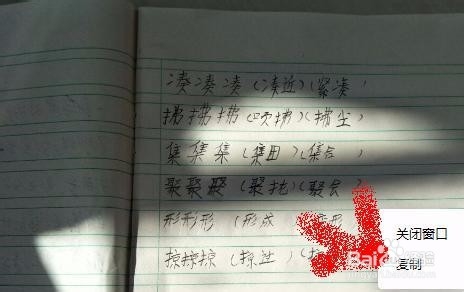 凑凑凑（凑近）（紧凑）
拂拂拂（吹拂）（拂尘）
集集集（集田）（集合）
聚聚聚（聚拢）（聚会）
形形形（形成
掠掠掠（掠过）（
关闭窗口
复制
Baidu经验